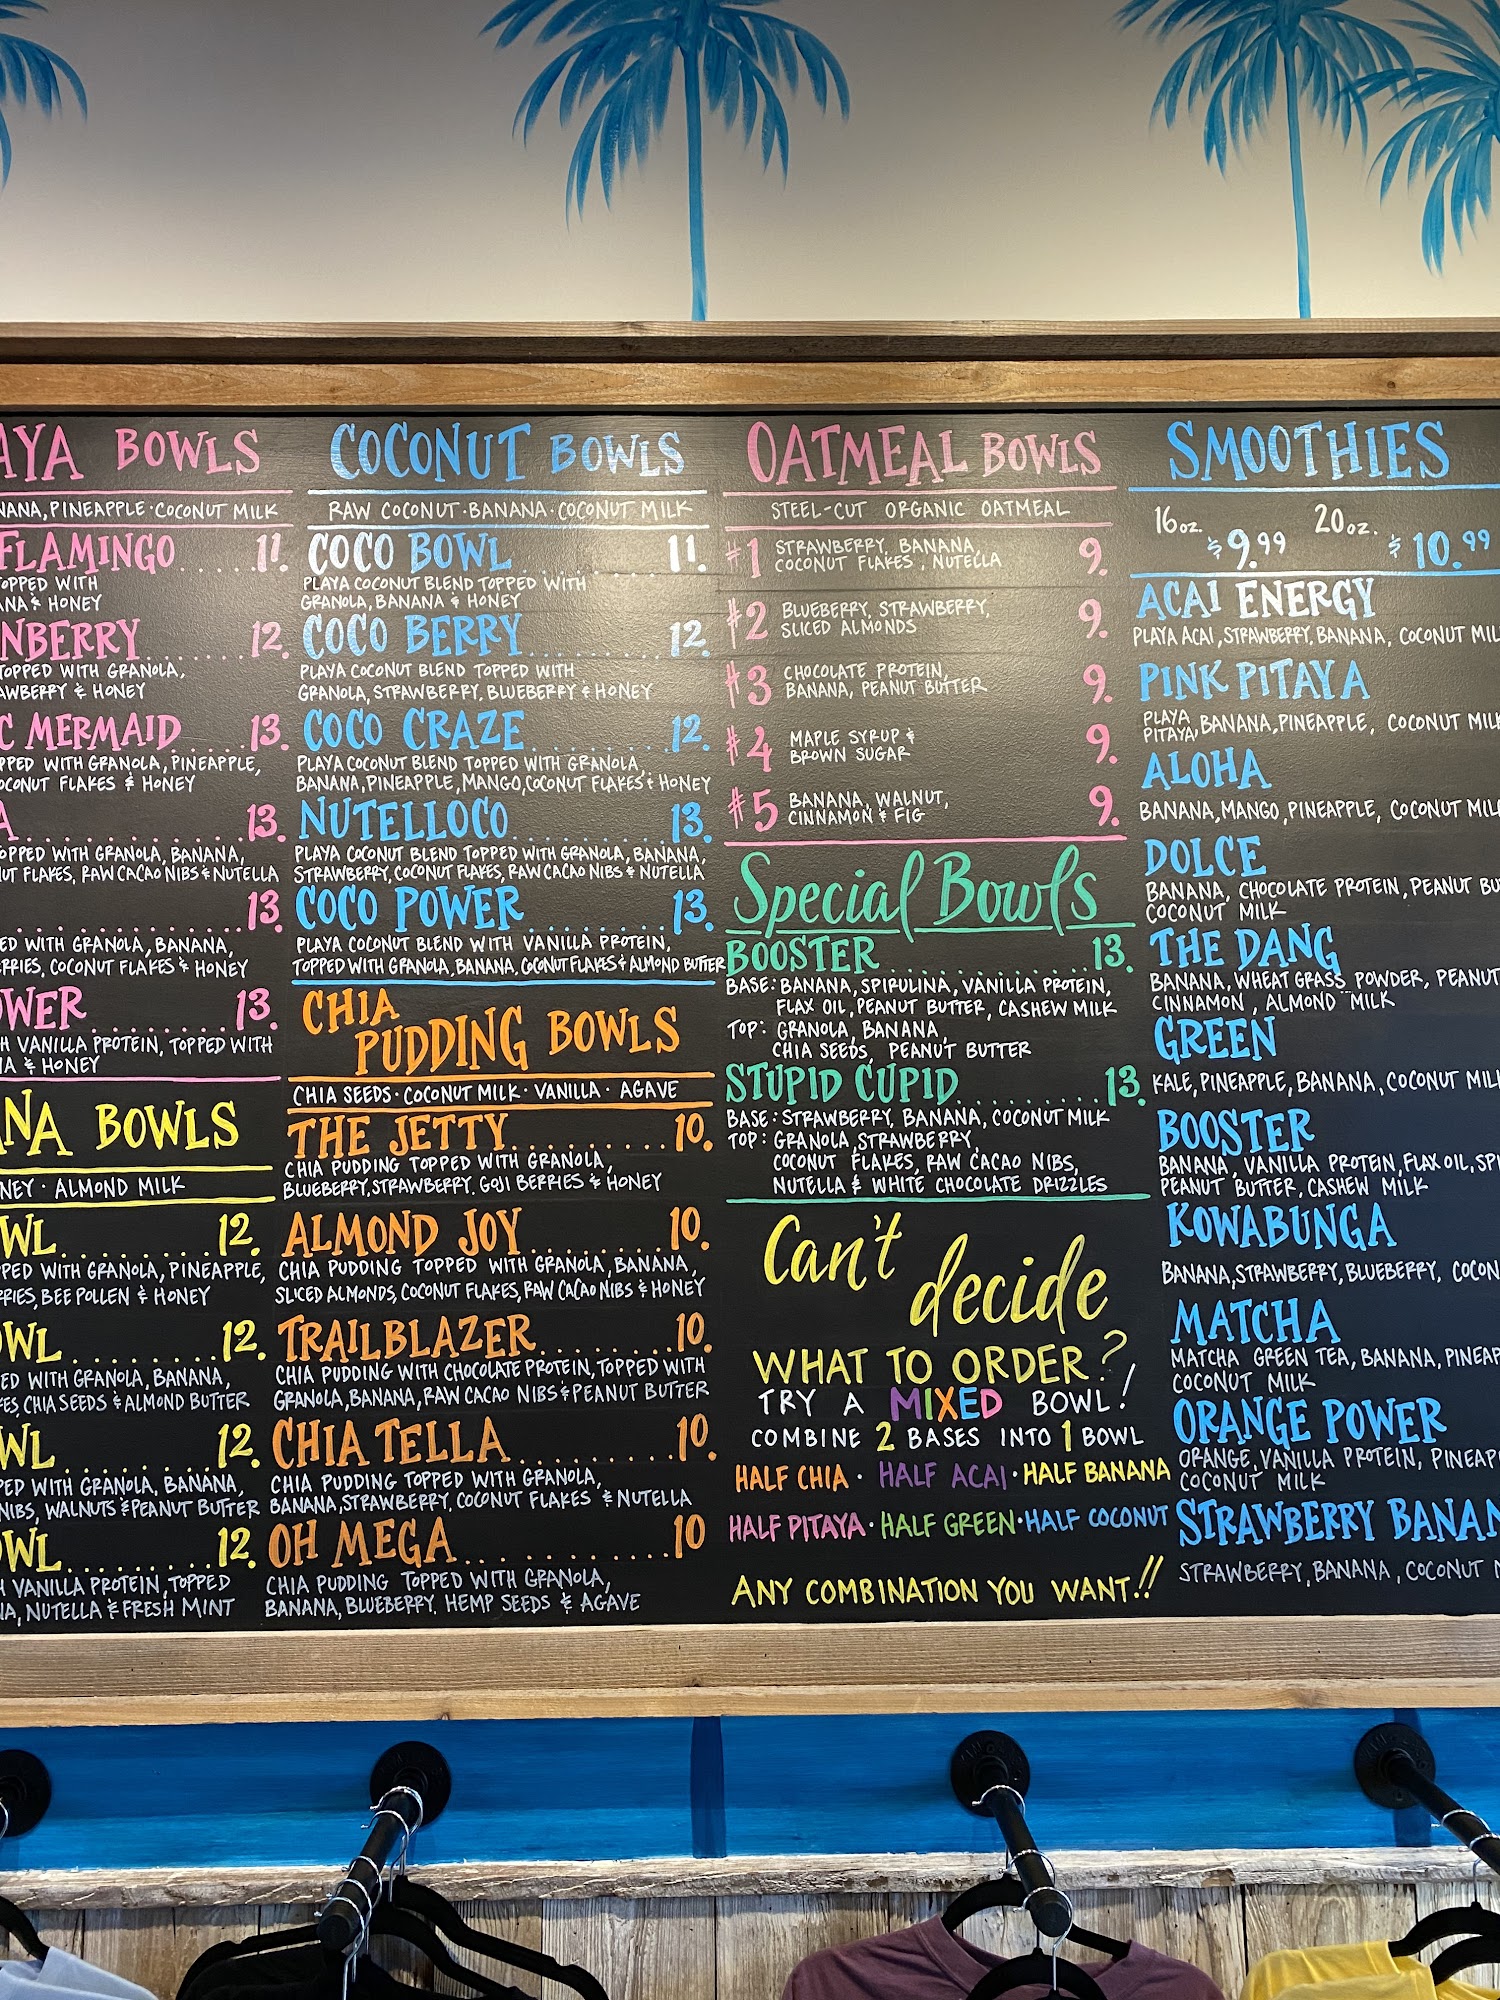 BOWLS
PINEAPPLE · COCONUT MILK
FLAMINGO 11.
TOPPED WITH
& HONEY
12.
TOPPED WITH GRANOLA,
& HONEY
MERMAID 13.
WITH GRANOLA, PINEAPPLE,
FLAKES & HONEY
13.
TOPPED WITH GRANOLA, BANANA,
FLAKES, RAW CACAO NIBS & NUTELLA
13.
WITH GRANOLA, BANANA,
COCONUT FLAKES & HONEY
13.
VANILLA PROTEIN, TOPPED WITH
& HONEY
BOWLS
· ALMOND MILK
12.
WITH GRANOLA, PINEAPPLE,
BEE POLLEN & HONEY
12.
WITH GRANOLA, BANANA,
CHIA SEEDS & ALMOND BUTTER
12.
WITH GRANOLA, BANANA,
NIBS, WALNUTS & PEANUT BUTTER
12.
VANILLA PROTEIN, TOPPED
NUTELLA & FRESH MINT
COCONUT BOWLS
RAW COCONUT · BANANA · COCONUT MILK
COCO BOWL 11.
PLAYA COCONUT BLEND TOPPED WITH
GRANOLA, BANANA & HONEY
COCO BERRY 12.
PLAYA COCONUT BLEND TOPPED WITH
GRANOLA, STRAWBERRY, BLUEBERRY & HONEY
COCO CRAZE 12.
PLAYA COCONUT BLEND TOPPED WITH GRANOLA,
BANANA, PINEAPPLE, MANGO, COCONUT FLAKES & HONEY
NUTELLOCO 13.
PLAYA COCONUT BLEND TOPPED WITH GRANOLA, BANANA,
STRAWBERRY, COCONUT FLAKES, RAW CACAO NIBS & NUTELLA
COCO POWER 13.
PLAYA COCONUT BLEND WITH VANILLA PROTEIN,
TOPPED WITH GRANOLA, BANANA, COCONUT FLAKES & ALMOND BUTTER
CHIA
PUDDING BOWLS
CHIA SEEDS · COCONUT MILK · VANILLA · AGAVE
THE JETTY 10.
CHIA PUDDING TOPPED WITH GRANOLA,
BLUEBERRY, STRAWBERRY, GOJI BERRIES & HONEY
ALMOND JOY 10.
CHIA PUDDING TOPPED WITH GRANOLA, BANANA,
SLICED ALMONDS, COCONUT FLAKES, RAW CACAO NIBS & HONEY
TRAILBLAZER 10.
CHIA PUDDING WITH CHOCOLATE PROTEIN, TOPPED WITH
GRANOLA, BANANA, RAW CACAO NIBS & PEANUT BUTTER
CHIA TELLA 10.
CHIA PUDDING TOPPED WITH GRANOLA,
BANANA, STRAWBERRY, COCONUT FLAKES & NUTELLA
OH MEGA 10
CHIA PUDDING TOPPED WITH GRANOLA,
BANANA, BLUEBERRY, HEMP SEEDS & AGAVE
OATMEAL BOWLS
STEEL-CUT ORGANIC OATMEAL
#1 STRAWBERRY, BANANA, 9.
COCONUT FLAKES, NUTELLA
#2 BLUEBERRY, STRAWBERRY, 9.
SLICED ALMONDS
#3 CHOCOLATE PROTEIN, 9.
BANANA, PEANUT BUTTER
#4 MAPLE SYRUP & 9.
BROWN SUGAR
#5 BANANA, WALNUT, 9.
CINNAMON & FIG
Special Bowls
BOOSTER 13.
BASE: BANANA, SPIRULINA, VANILLA PROTEIN,
FLAX OIL, PEANUT BUTTER, CASHEW MILK
TOP: GRANOLA, BANANA,
CHIA SEEDS, PEANUT BUTTER
STUPID CUPID 13.
BASE: STRAWBERRY, BANANA, COCONUT MILK
TOP: GRANOLA, STRAWBERRY,
COCONUT FLAKES, RAW CACAO NIBS,
NUTELLA & WHITE CHOCOLATE DRIZZLES
Can't
decide
WHAT TO ORDER?
TRY A MIXED BOWL!
COMBINE 2 BASES INTO 1 BOWL
HALF CHIA · HALF ACAI · HALF BANANA
HALF PITAYA · HALF GREEN · HALF COCONUT
ANY COMBINATION YOU WANT!!
SMOOTHIES
16 oz. 20 oz.
$9.99 $10.99
ACAI ENERGY
PLAYA ACAI, STRAWBERRY, BANANA, COCONUT
PINK PITAYA
PLAYA
PITAYA, BANANA, PINEAPPLE, COCONUT
ALOHA
BANANA, MANGO, PINEAPPLE, COCONUT
DOLCE
BANANA, CHOCOLATE PROTEIN, PEANUT
COCONUT MILK
THE DANG
BANANA, WHEAT GRASS POWDER, PEANUT
CINNAMON, ALMOND MILK
GREEN
KALE, PINEAPPLE, BANANA, COCONUT
BOOSTER
BANANA, VANILLA PROTEIN, FLAX OIL,
PEANUT BUTTER, CASHEW MILK
KOWABUNGA
BANANA, STRAWBERRY, BLUEBERRY,
MATCHA
MATCHA GREEN TEA, BANANA,
COCONUT MILK
ORANGE POWER
ORANGE, VANILLA PROTEIN,
COCONUT MILK
STRAWBERRY
STRAWBERRY, BANANA, COCONUT